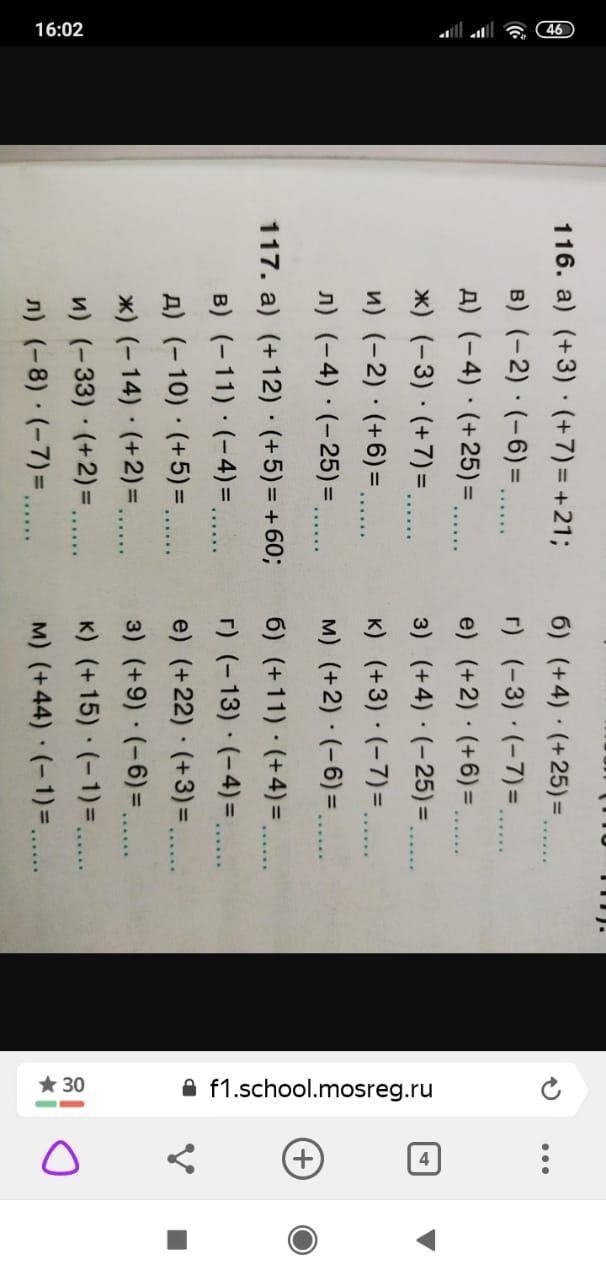 16:02
46
116. а) (+3) · (+7) = +21; б) (+4) · (+25) = ......
в) (−2) · (−6) = ...... г) (−3) · (−7) = ......
д) (−4) · (+25) = ...... е) (+2) · (+6) = ......
ж) (−3) · (+7) = ...... з) (+4) · (−25) = ......
и) (−2) · (+6) = ...... к) (+3) · (−7) = ......
л) (−4) · (−25) = ...... м) (+2) · (−6) = ......
117. а) (+12) · (+5) = +60; б) (+11) · (+4) = ......
в) (−11) · (−4) = ...... г) (−13) · (−4) = ......
д) (−10) · (+5) = ...... е) (+22) · (+3) = ......
ж) (−14) · (+2) = ...... з) (+9) · (−6) = ......
и) (−33) · (+2) = ...... к) (+15) · (−1) = ......
л) (−8) · (−7) = ...... м) (+44) · (−1) = ......
30 f1.school.mosreg.ru
4